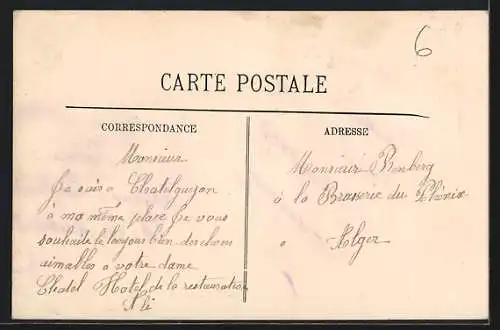 6
CARTE POSTALE
CORRESPONDANCE
Monsieur
Je suis a Chatelguyon
a ma même place Je vous
souhaite le bonjour bien des choses
aimables a votre dame
Chatel Hotel de la restauration
Ali
ADRESSE
Monsieur Remberg
à la Brasserie du Phénix
a Alger